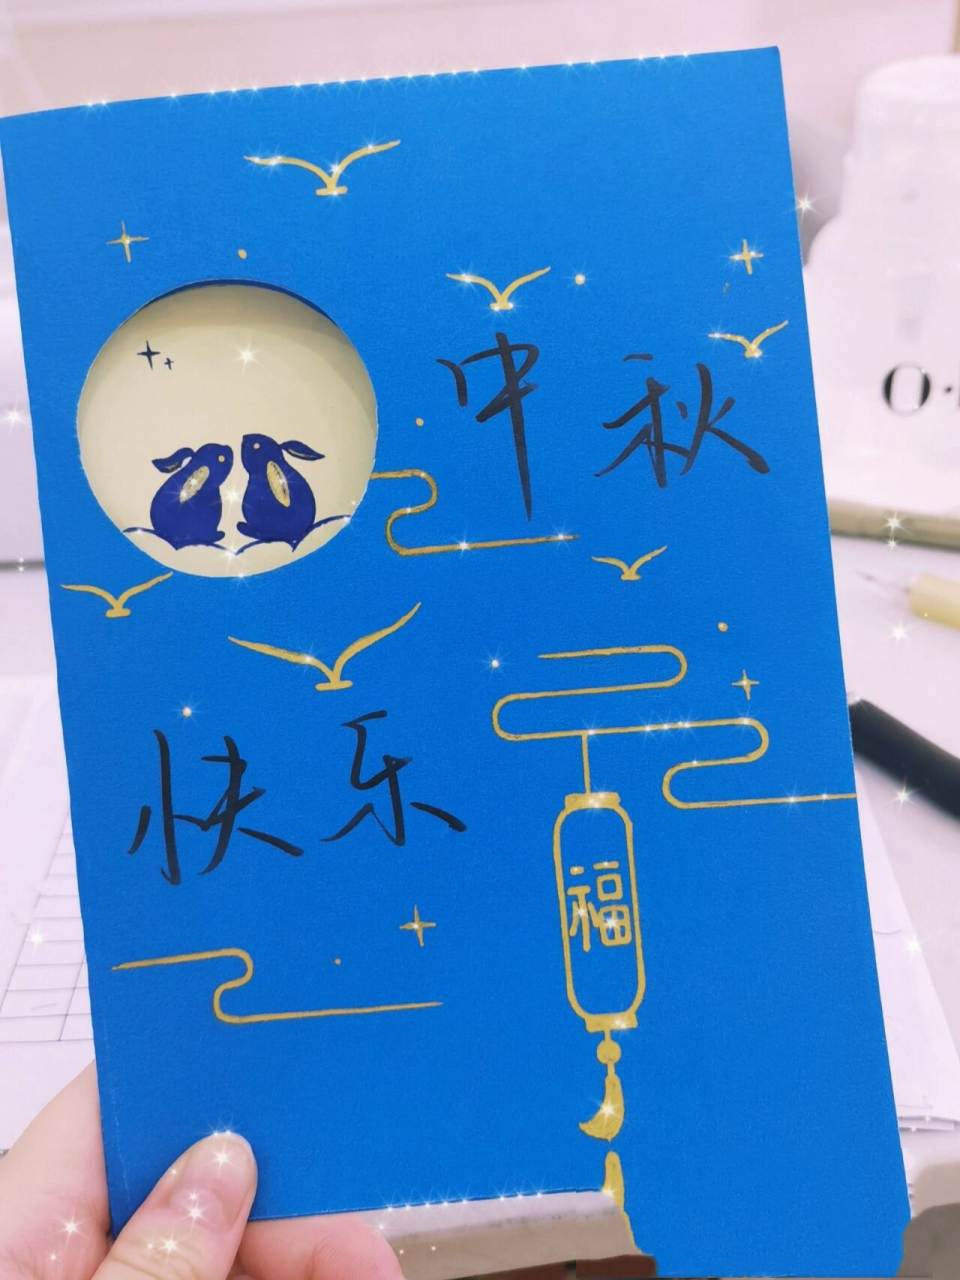 中秋
快乐
福